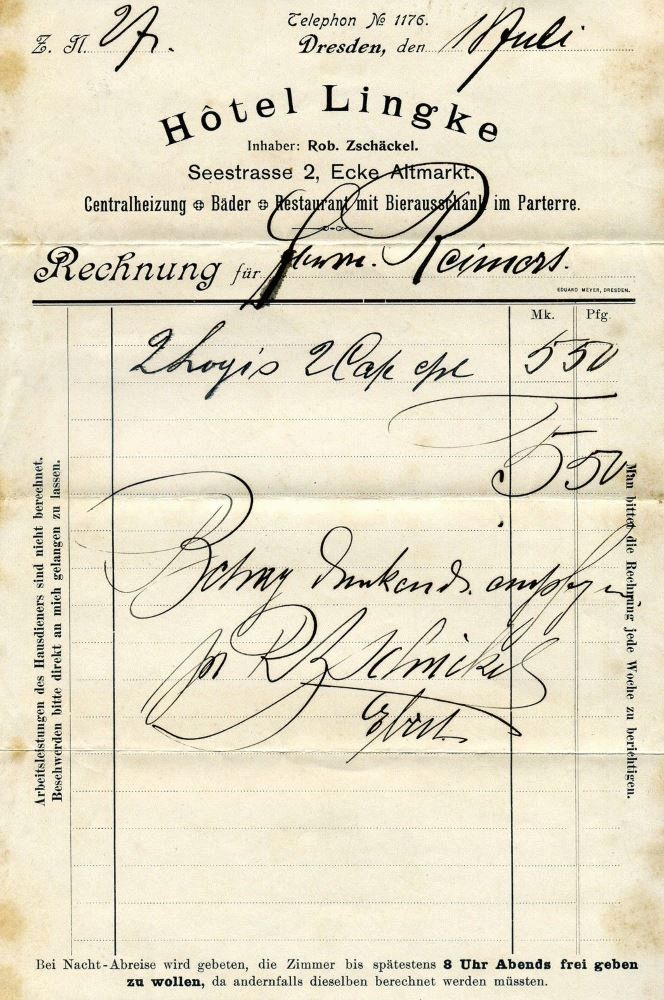 Telephon № 1176.
Z. N. 27.
Dresden, den 18 Juli
Hôtel Lingke
Inhaber: Rob. Zschäckel.
Seestrasse 2, Ecke Altmarkt.
Centralheizung Bäder Restaurant mit Bierausschank im Parterre.
Rechnung für Herrn. Reimers.
EDUARD MEYER, DRESDEN.
Mk. Pfg.
2 Logis 2 Caf cpl 5 50
5 50
Betrag dankend. empfangen
pr R Zschäckel
Arbeitsleistungen des Hausdieners sind nicht berechnet.
Beschwerden bitte direkt an mich gelangen zu lassen.
Man bittet die Rechnung jede Woche zu berichtigen.
Bei Nacht-Abreise wird gebeten, die Zimmer bis spätestens 8 Uhr Abends frei geben
zu wollen, da andernfalls dieselben berechnet werden müssten.